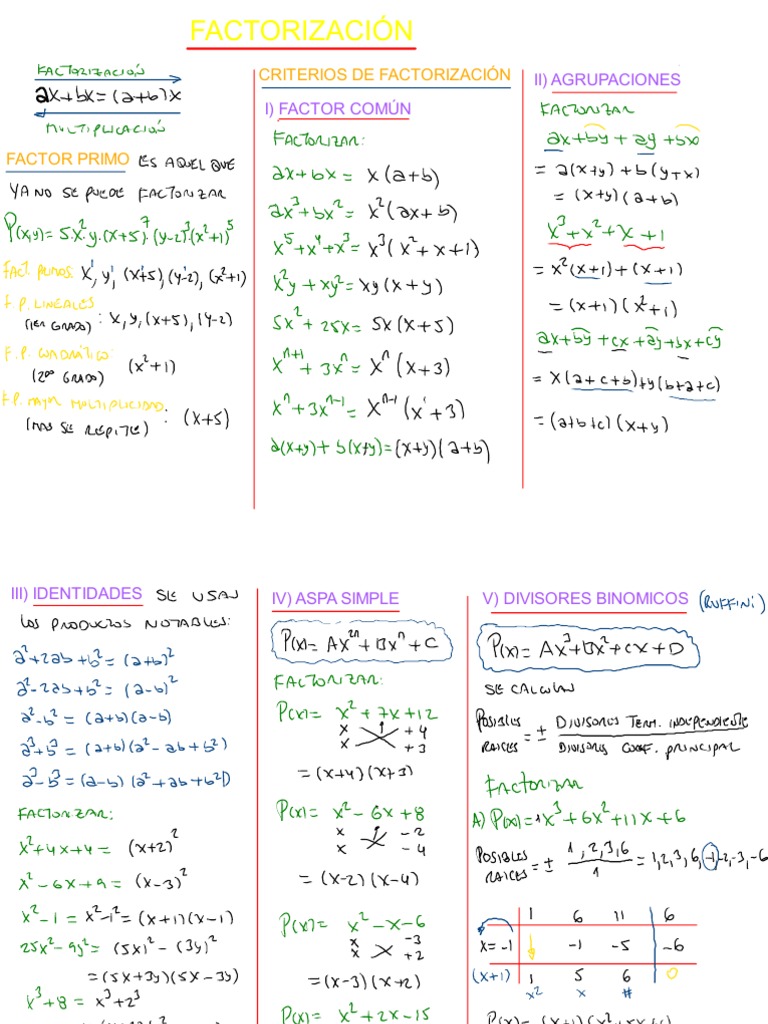 FACTORIZACIÓN
FACTORIZACIÓN
ax+bx=(a+b)x
MULTIPLICACIÓN
FACTOR PRIMO ES AQUEL QUE
YA NO SE PUEDE FACTORIZAR
P(x,y)=5x².y.(x+5)⁷.(y-2)³(x²+1)⁵
FACT. PRIMOS: x¹, y¹, (x+5), (y-2), (x²+1)
F P. LINEALES
(1ER GRADO) : x, y, (x+5), (y-2)
F.P. CUADRÁTICO:
(2DO GRADO) (x²+1)
F.P. MAYOR MULTIPLICIDAD
(MAS SE REPITE) : (x+5)
CRITERIOS DE FACTORIZACIÓN
I) FACTOR COMÚN
FACTORIZAR:
ax+bx = x(a+b)
ax³+bx² = x²(ax+b)
x⁵+x⁴+x³ = x³(x²+x+1)
x²y+xy² = xy(x+y)
5x²+25x = 5x(x+5)
xⁿ⁺¹+3xⁿ = xⁿ(x+3)
xⁿ+3xⁿ⁻¹ = xⁿ⁻¹(x¹+3)
a(x+y)+b(x+y)=(x+y)(a+b)
II) AGRUPACIONES
FACTORIZAR
ax+by+ay+bx
= a(x+y)+b(y+x)
= (x+y)(a+b)
x³+x²+x+1
= x²(x+1)+(x+1)
= (x+1)(x²+1)
ax+by+cx+ay+bx+cy
= x(a+c+b)+y(b+a+c)
= (a+b+c)(x+y)
III) IDENTIDADES SE USAN
LOS PRODUCTOS NOTABLES:
a²+2ab+b²=(a+b)²
a²-2ab+b²=(a-b)²
a²-b²=(a+b)(a-b)
a³+b³=(a+b)(a²-ab+b²)
a³-b³=(a-b)(a²+ab+b²)
FACTORIZAR:
x²+4x+4= (x+2)²
x²-6x+9= (x-3)²
x²-1= x²-1²=(x+1)(x-1)
25x²-9y²= (5x)²-(3y)²
=(5x+3y)(5x-3y)
x³+8= x³+2³
IV) ASPA SIMPLE
P(x)= Ax²ⁿ+Bxⁿ+C
FACTORIZAR:
P(x)= x²+7x+12
x +4
x +3
=(x+4)(x+3)
P(x)= x²-6x+8
x -2
x -4
=(x-2)(x-4)
P(x)= x²-x-6
x -3
x +2
=(x-3)(x+2)
P(x)= x²+2x-15
V) DIVISORES BINOMICOS (RUFFINI)
P(x)= Ax³+Bx²+Cx+D
SE CALCULAN
POSIBLES RAICES = ± DIVISORES TERM. INDEPENDIENTE
DIVISORES COEF. PRINCIPAL
FACTORIZAR
A) P(x)=1x³+6x²+11x+6
POSIBLES RAICES = ± 1,2,3,6 / 1 = 1,2,3,6,-1,-2,-3,-6
1 6 11 6
x=-1 ↓ -1 -5 -6
(x+1) 1 5 6 0
x² x #